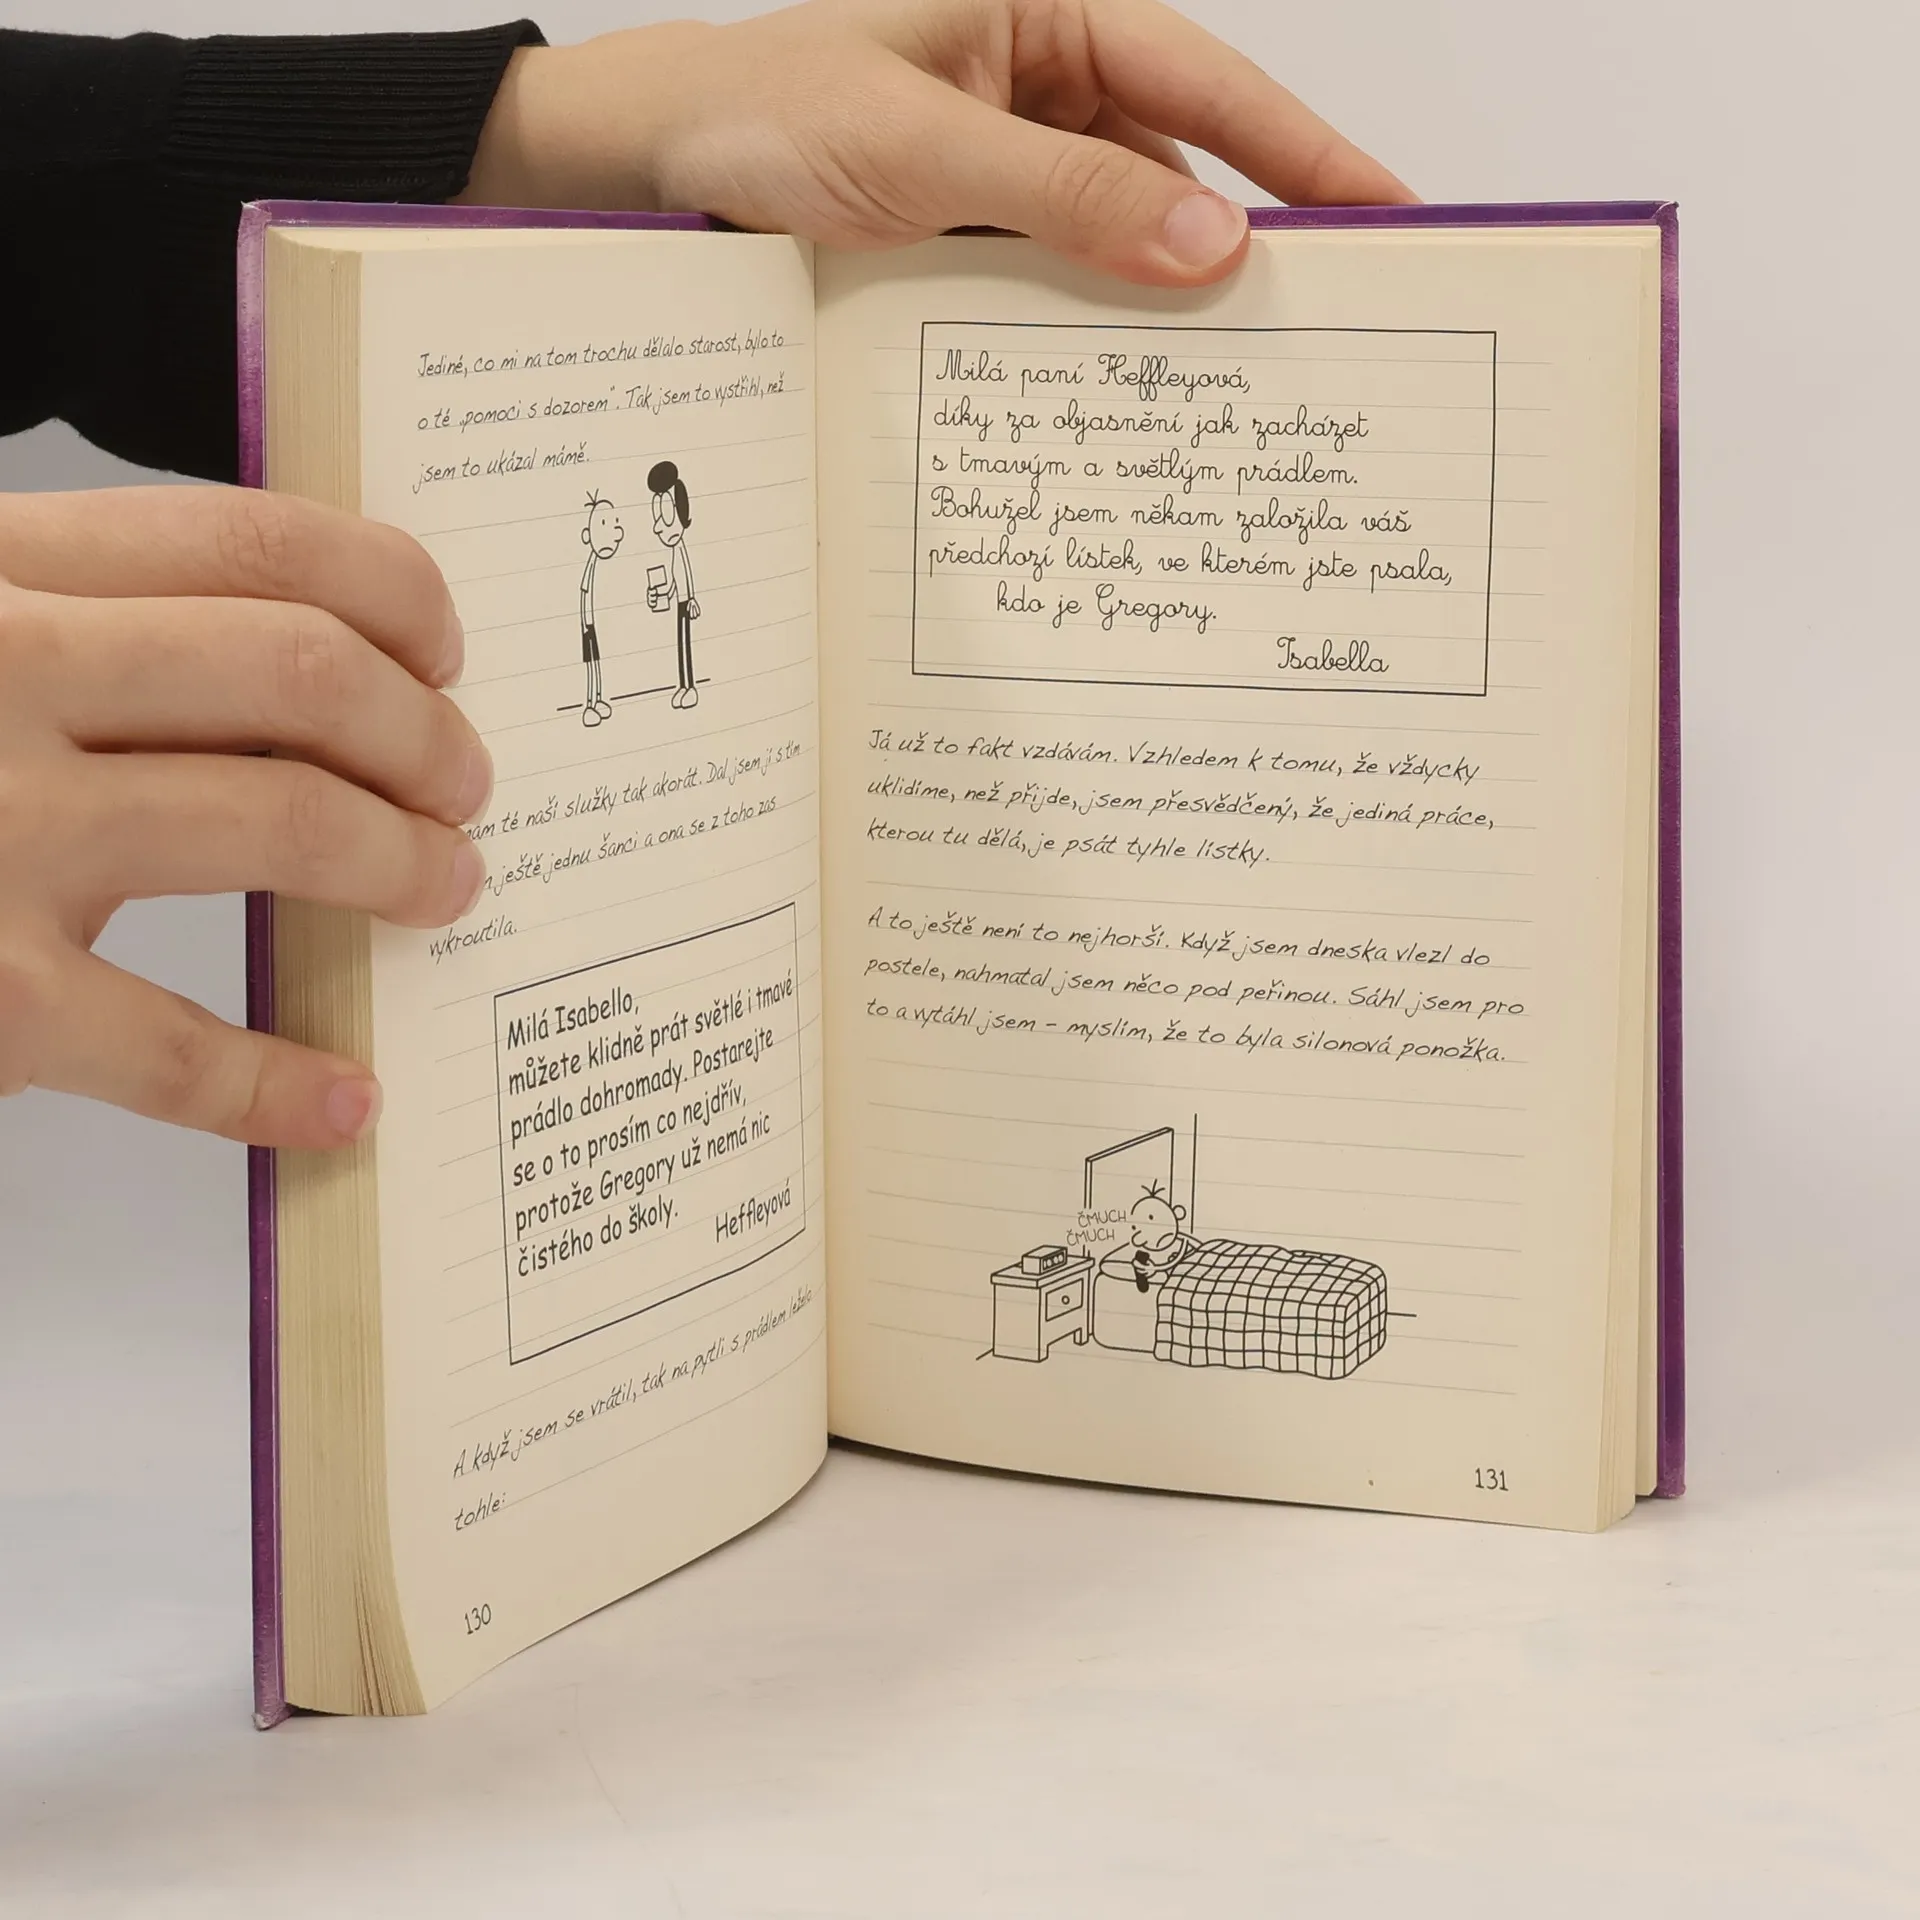 Jediné, co mi na tom trochu dělalo starost, bylo to
o té „pomoci s dozorem". Tak jsem to vystřihl, než
jsem to ukázal mámě.
té naší služky tak akorát. Dal jsem jí s tím
ještě jednu šanci a ona se z toho zas
vykroutila.
Milá Isabello,
můžete klidně prát světlé i tmavé
prádlo dohromady. Postarejte
se o to prosím co nejdřív,
protože Gregory už nemá nic
čistého do školy.
Heffleyová
A když jsem se vrátil, tak na pytli s prádlem leželo
tohle:
130
Milá paní Heffleyová,
díky za objasnění jak zacházet
s tmavým a světlým prádlem.
Bohužel jsem někam založila váš
předchozí lístek, ve kterém jste psala,
kdo je Gregory.
Isabella
Já už to fakt vzdávám. Vzhledem k tomu, že vždycky
uklidíme, než přijde, jsem přesvědčený, že jediná práce,
kterou tu dělá, je psát tyhle lístky.
A to ještě není to nejhorší. Když jsem dneska vlezl do
postele, nahmatal jsem něco pod peřinou. Sáhl jsem pro
to a vytáhl jsem – myslím, že to byla silonová ponožka.
ČMUCH
ČMUCH
131